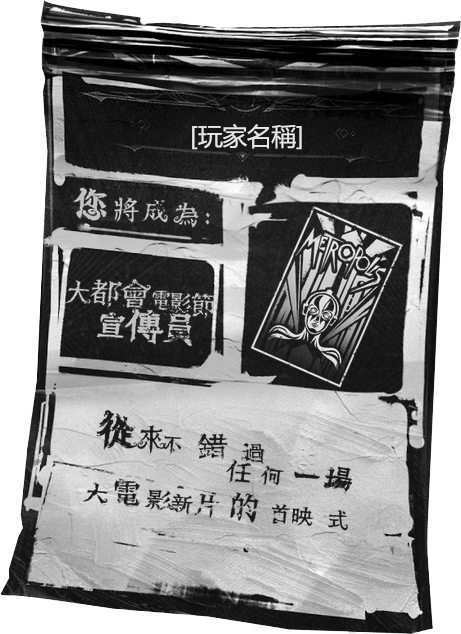 [玩家名稱]
您將成為:
METROPOLIS
大都會電影節
宣傳員
從來不錯過
任何一場
大電影新片的首映式